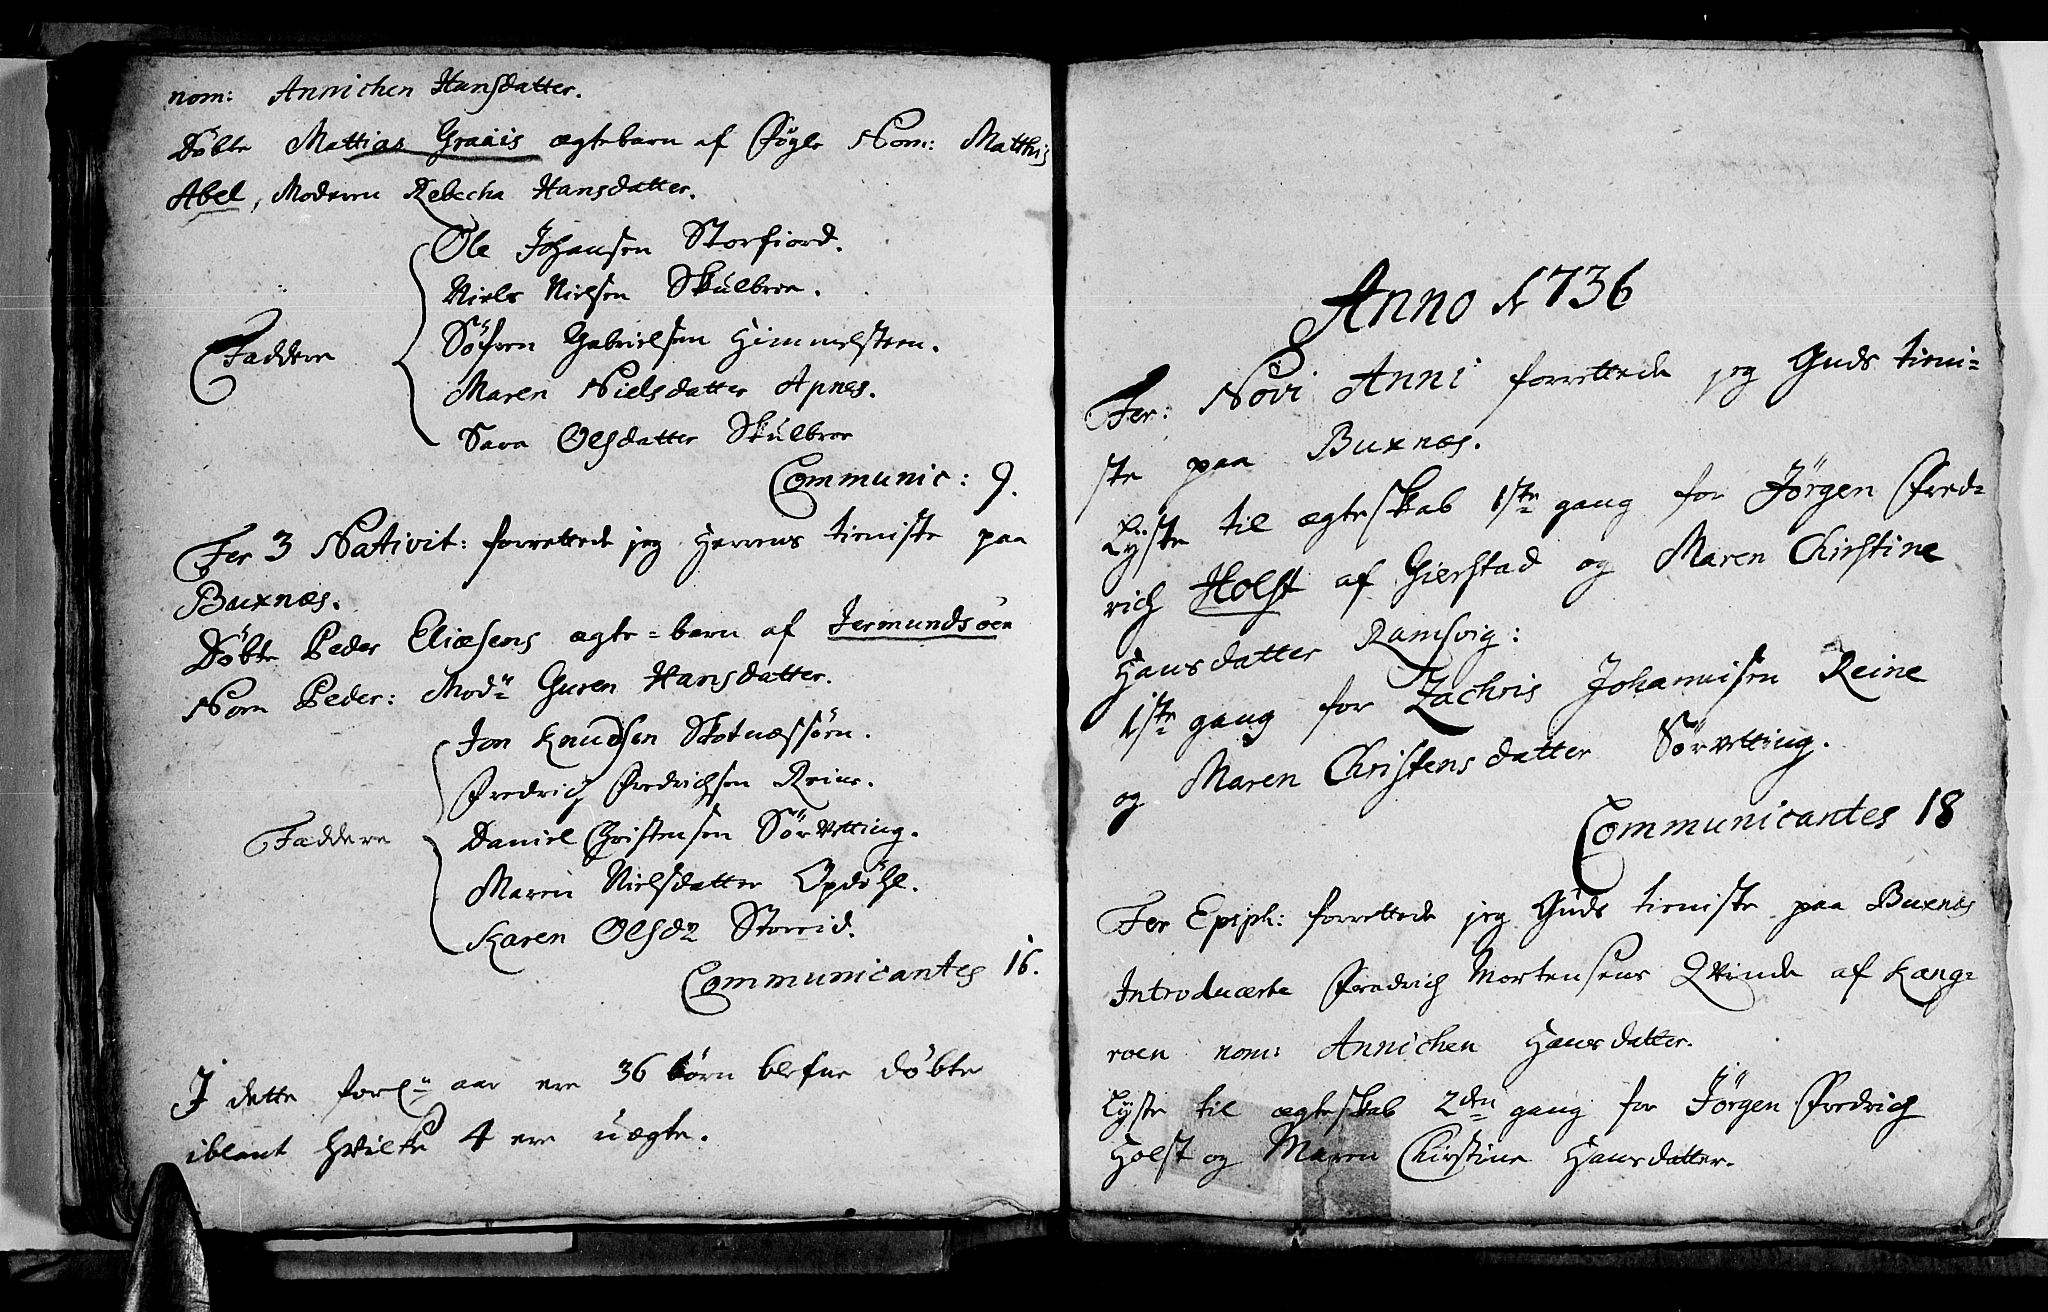 nom: Annichen Hansdatter.
Döbte Mattias Graais ægtebarn af Fögle Nom: Matthis
Abel, Moderen Rebecha Hansdatter.
Ole Johansen Storfiord.
Niels Nielsen Skulbroe.
Söfren Gabrielsen Himmelsteen.
Faddere
Maren Nielsdatter Apnes.
Sara Olsdatter Skulbroe
Communic: 9.
Fer 3 Nativit: forrettede jeg Herrens tieniste paa
Buxnæs.
Döbte Peder Eliæsens ægte-barn af Jermundsöen
Nom Peder: Mod: Guren Hansdatter.
Jon Knudsen Skotnæssörn.
Fredrich Fredrichsen Reine.
Faddere
Daniel Christensen Sörvetting.
Maren Nielsdatter Opdöhl.
Karen Olsdr Storeid.
Communicantes 16.
I dette forl: aar ere 36 börn blefne döbte
iblant hvilke 4 ere uægte.
Anno 1736
Fer: Novi Anni forrettede jeg Guds tieni-
ste paa Buxnæs.
Lyste til ægteskab 1ste gang for Jörgen Fred-
rich Holst af Gierstad og Maren Chirstine
Hansdatter Ramsvig:
1ste gang for Zachris Johannisen Reine
og Maren Christensdatter Sörvetting.
Communicantes 18
Fer Epiph: forrettede jeg Guds tieniste paa Buxnæs
Introducerte Fredrich Mortensens Qvinde af Kang-
roen nom: Annichen Hansdatter.
Lyste til ægteskab 2den gang for Jörgen Fredrich
Holst og Maren Chirstine Hansdatter.